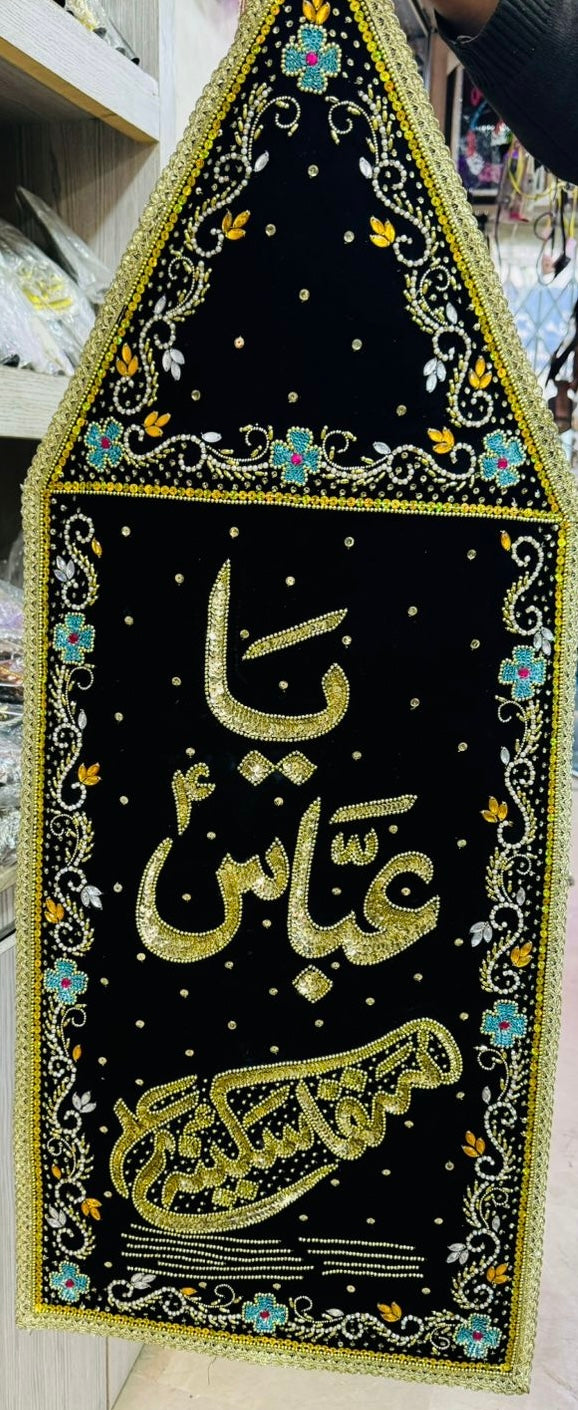 یا
عبّاسؑ
سقا سکینہ